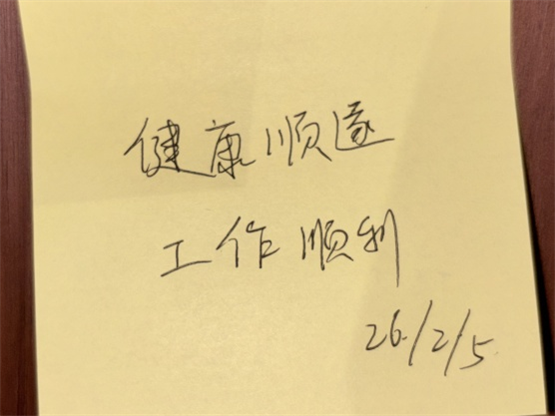 健康顺遂
工作顺利
26/2/5